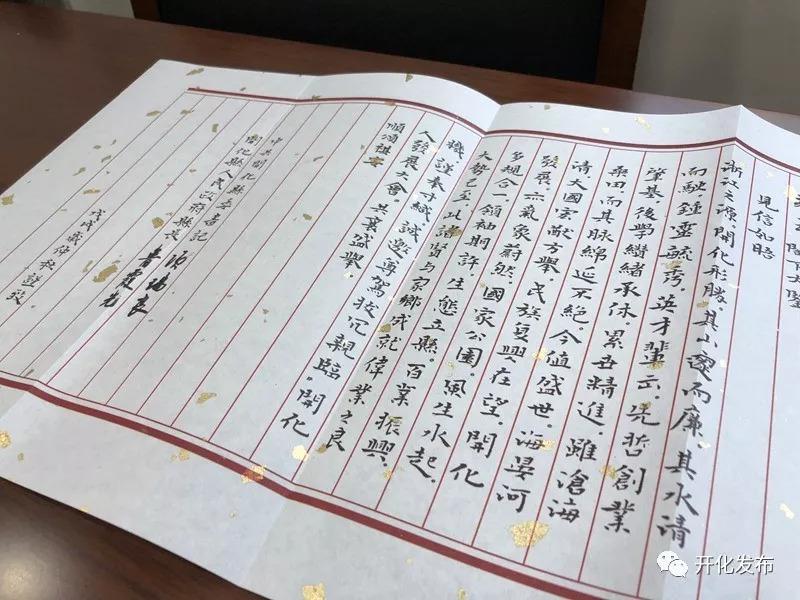 閣下大鑒
見信如晤
浙江之源。開化形勝。其山邃而廉。其水清
而駛。鍾靈毓秀。英才輩出。先哲創業
肇基。後學纘緒承休。累世精進。雖滄海
桑田而其脉綿延不絕。今值盛世。海晏河
清。大國宏猷方舉。民族复興在望。開化
發展。亦氣象蔚然。國家公園風生水起。
多規合一領袖期許。生態立縣。百業振興。
大勢已至。此諸賢与家鄉成就偉業之良
機。謹奉寸緘。誠邀尊駕撥冗親臨。開化
人發展大會。共襄盛舉。
順頌祺安
中共開化縣委書記 項瑞良
開化縣人民政府縣長 魯霞光
戊戌歲仲秋謹致
开化发布